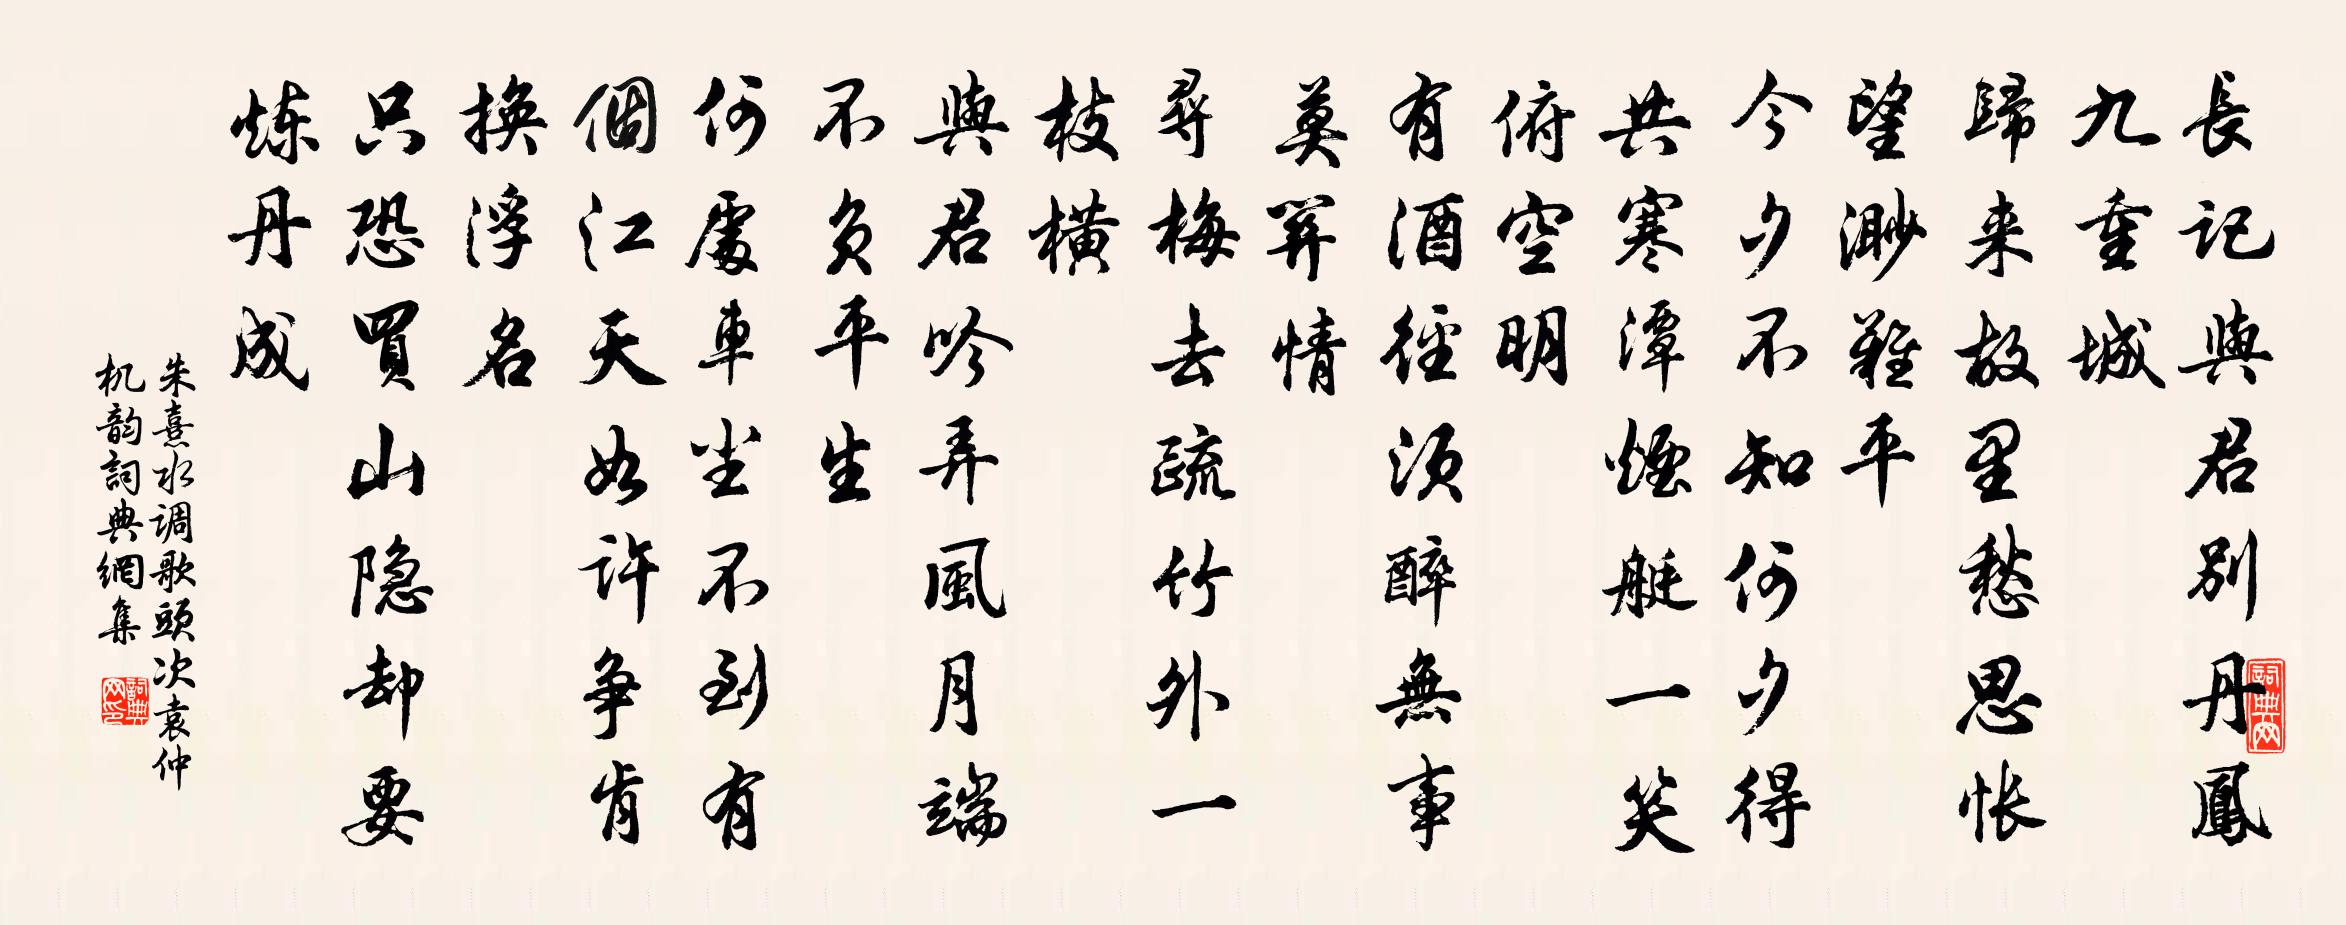 長記與君別丹鳳
九重城
歸来故里愁思怅
望渺難平
今夕不知何夕得
共寒潭煙艇一笑
俯空明
有酒徑須醉無事
莫關情
尋梅去疏竹外一
枝橫
與君吟弄風月端
不負平生
何處車尘不到有
個江天如許争肯
換浮名
只恐買山隐却要
炼丹成
朱熹水调歌頭次袁仲
机韵詞典網集
詞典网
詞典网印